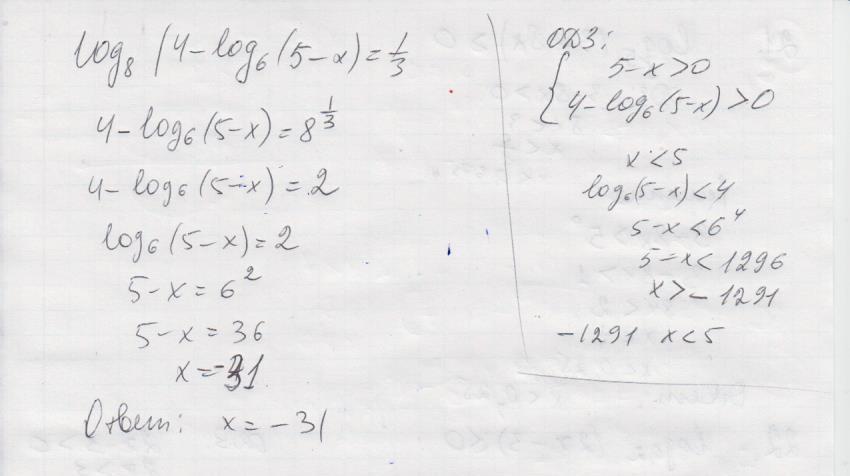 log₈ (4 - log₆ (5-x) = 1/3
4 - log₆ (5-x) = 8^(1/3)
4 - log₆ (5-x) = 2
log₆ (5-x) = 2
5-x = 6²
5-x = 36
x = -31
Ответ: x = -31
ОДЗ:
5-x > 0
4 - log₆ (5-x) > 0
x < 5
log₆ (5-x) < 4
5-x < 6⁴
5-x < 1296
x > -1291
-1291 x < 5